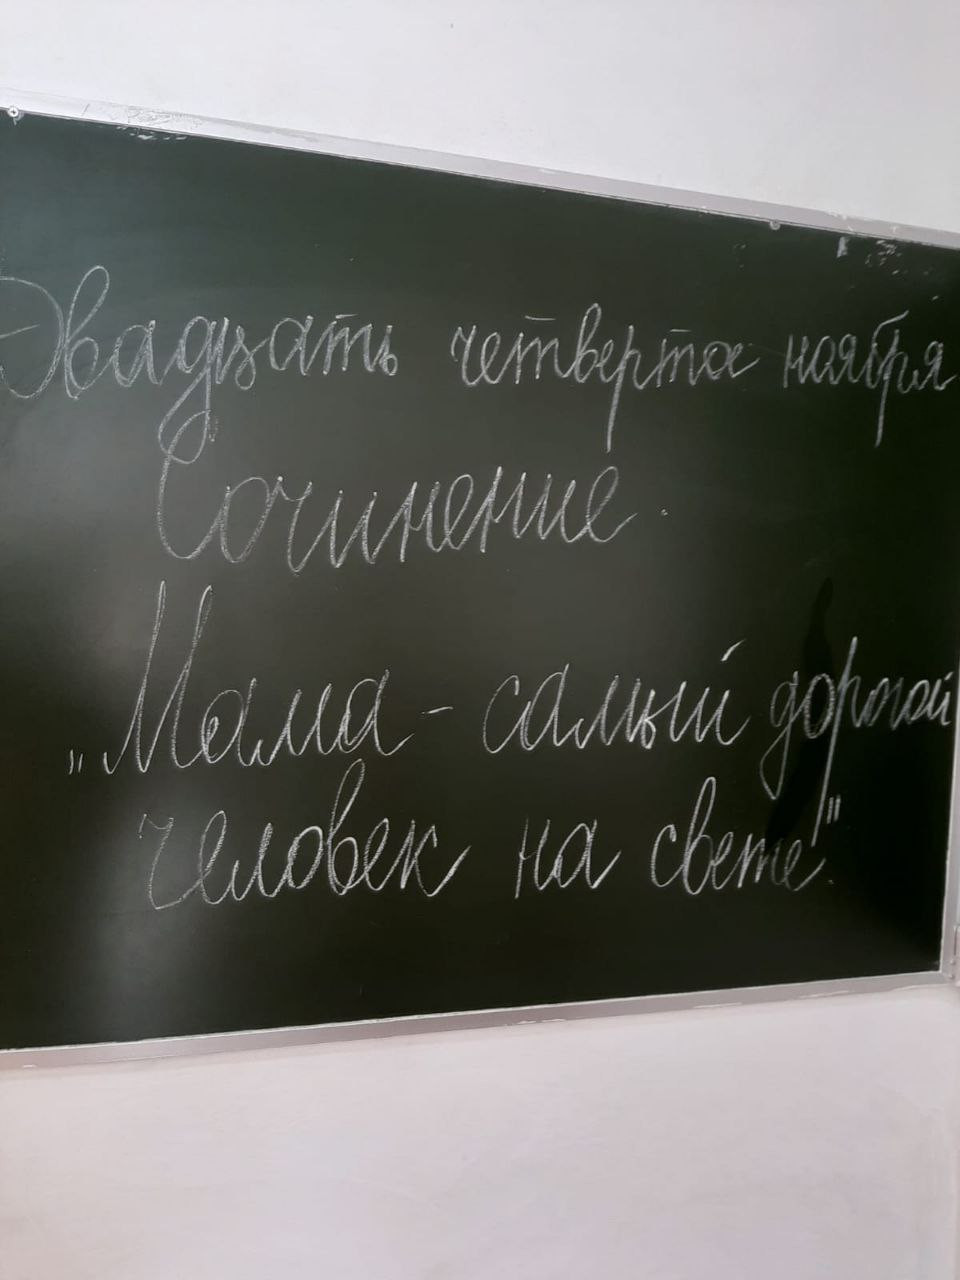 Двадцать четверта ноября
Сочинение.
„Мама - самый дорогой
человек на свете".